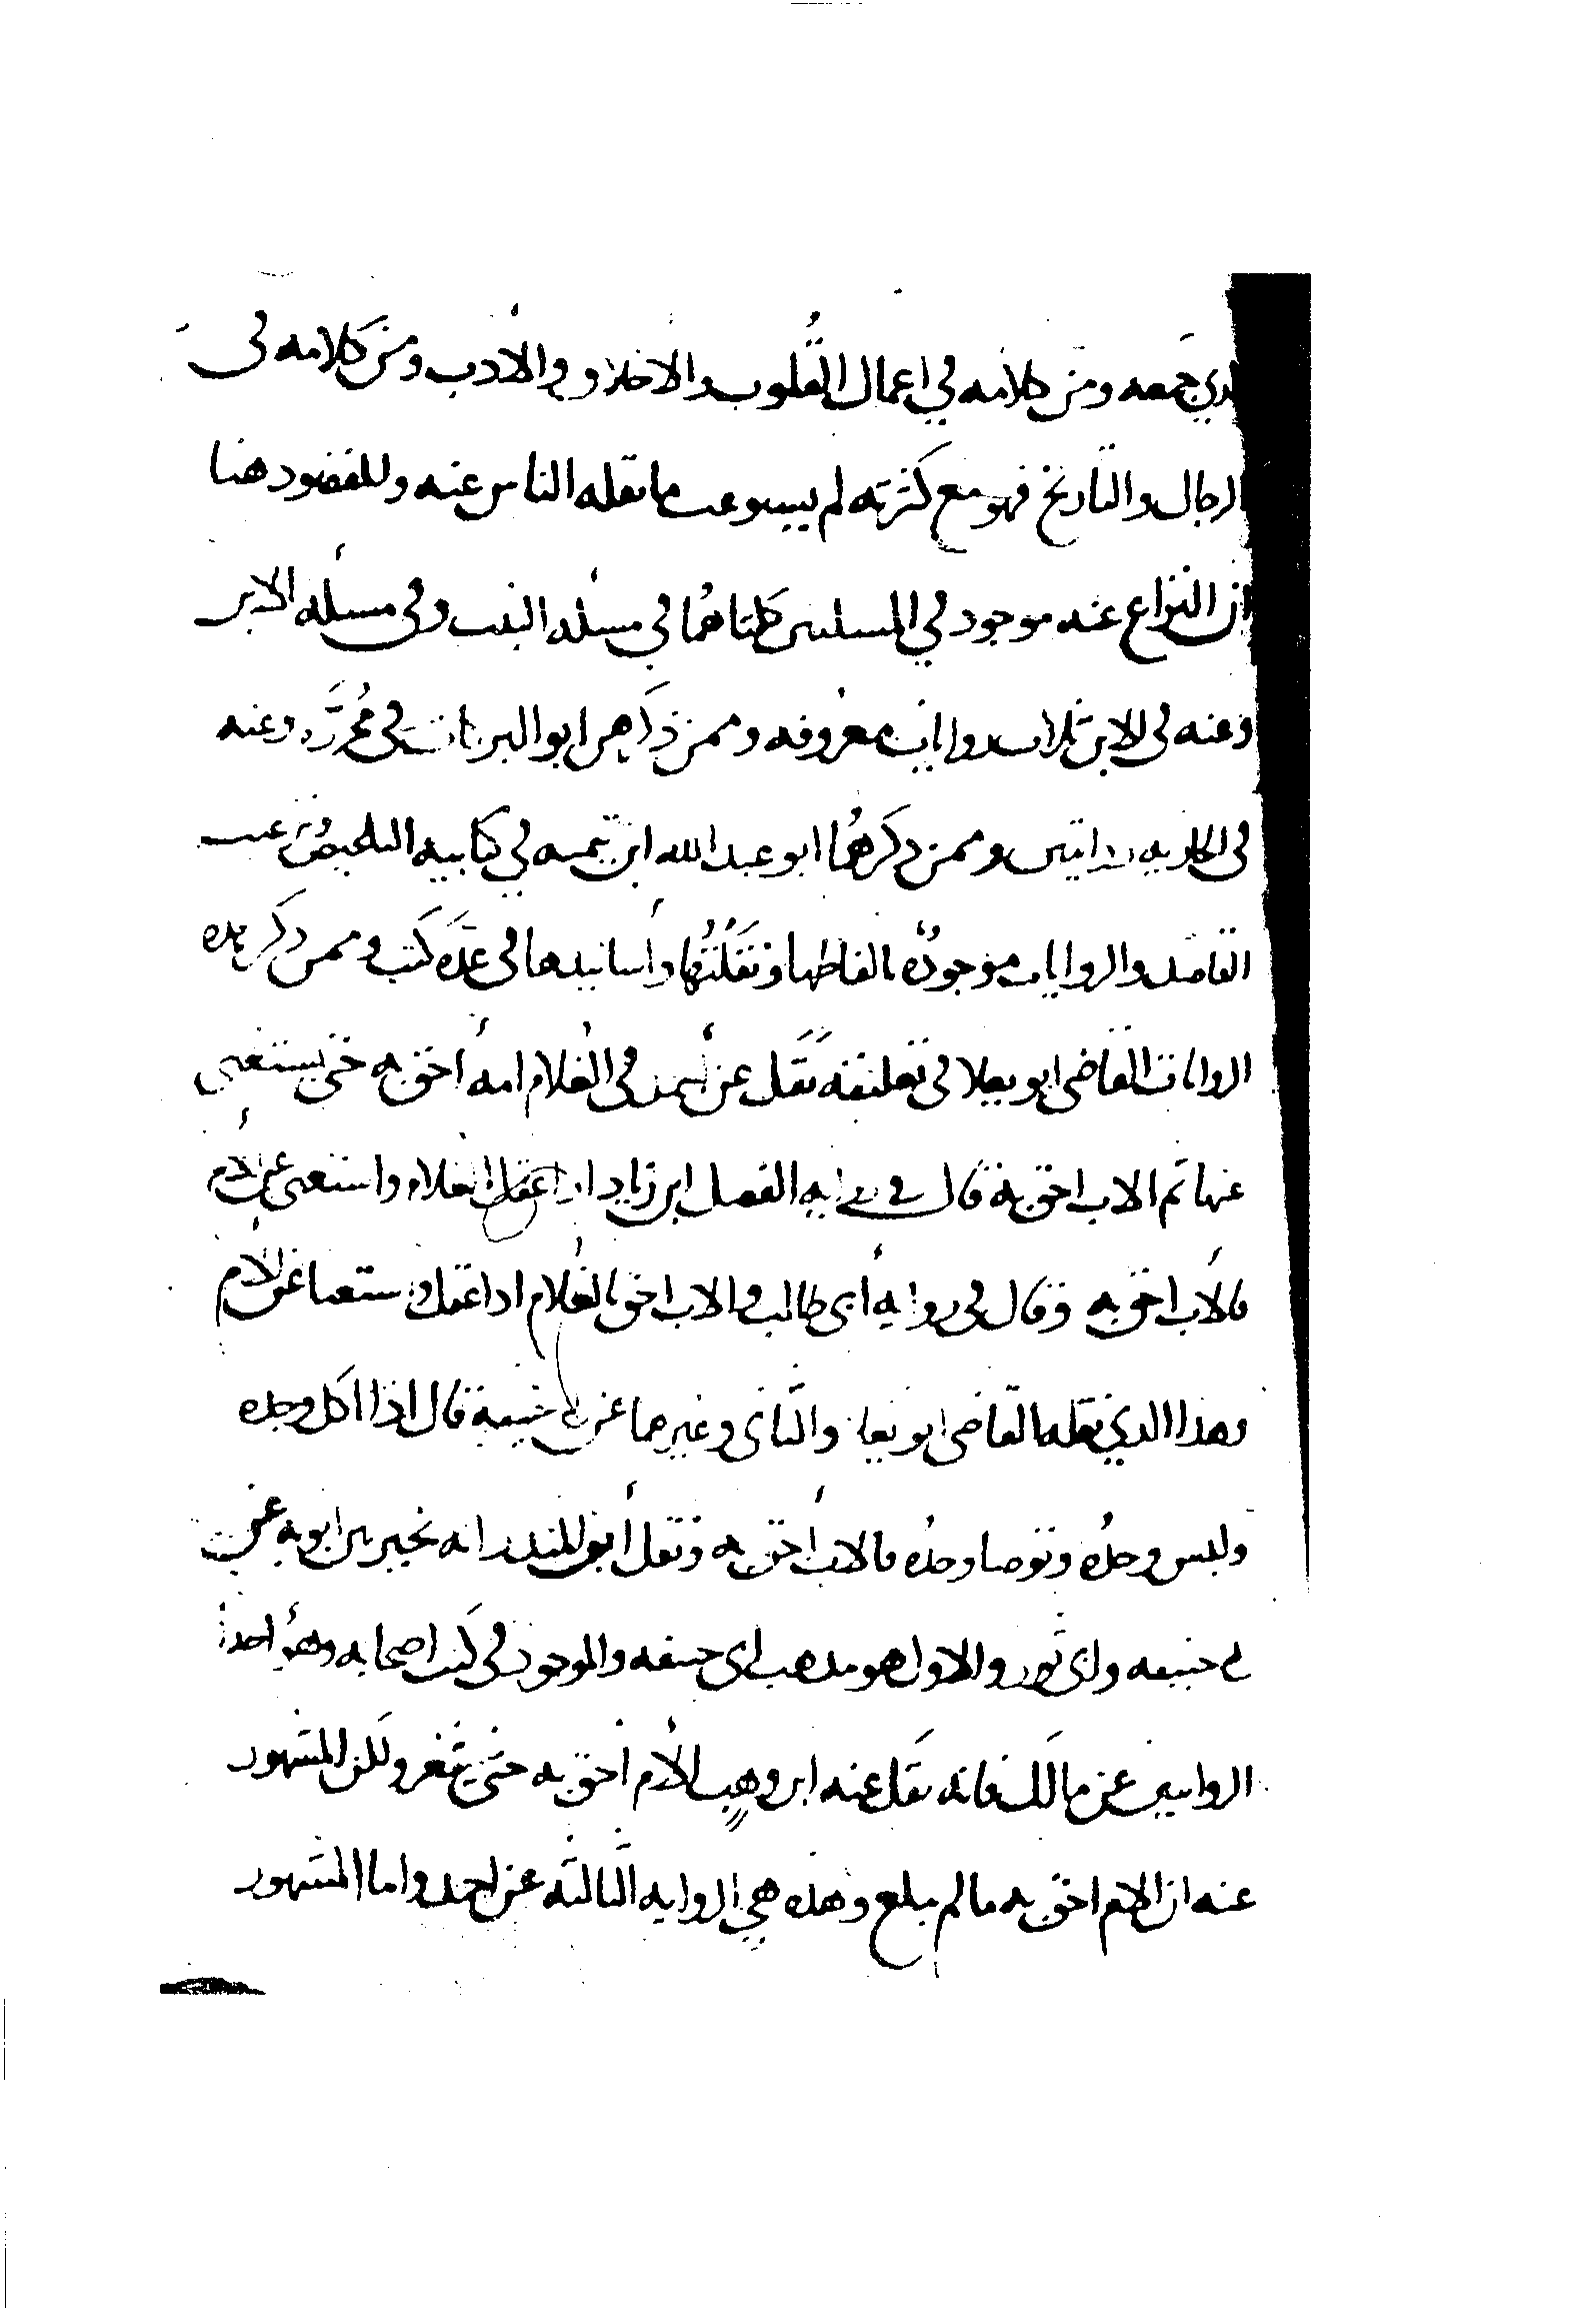 الذي جمعه ومن كلامه في اعمال القُلوب والاخلاق والأدب ومن كلامه في
الرجال والتاريخ فهو مع كثرته لم يستوعب ما نقله الناس عنه والمقصود هنا
ان النزاع عنه موجود في المسلتين كلتاهُما في مسئلة البنت وفي مسئله الابن
وعنه في الابن ثلاث روايات معروفه وممن ذكرهن ابو البركات في مُحَرَّره وعنه
في الجاريه روايتين وممن ذكرهُما ابو عبد الله ابن تيميه في كتابيه التلخيص وترغيب
القاصد والروايات موجودة بالفاظها ونَقَلَتُها وأسانيدها في عدَّة كتب وممن ذكر هذه
الروايات القاضي ابو يعلا في تعليقه نَقَلَ عن أحمد في الغُلام امه أحق به حتى يستغني
عنها ثم الاب احق به قال في رواية الفضل ابن زياد اذا عقل الغلام واستغنى عن الأم
فالأب احق به وقال في رواية أبي طالب والاب احق بالغُلام اذا عقل واستغنا عن الأم
وهذا الذي نقله القاضي ابو يعلا والثاني وغيرهما عن ابي حنيفة قال اذا اكل وحده
ولبس وحدُه وتوضا وحدُه فالاب أحق به ونقل أبن المنذر انه يخير بين ابويه عن
ابي حنيفه وابي ثور والاول هو مذهب ابي حنيفه والموجود في كتب اصحابه وهو احد
الروايتين عن مالك فانه نقل عنه ابن وهب الأم أحق به حتى يثغر ولكن المشهور
عنه ان الام احق به ما لم يبلغ وهذه هي الرواية الثالثه عن احمد واما المشهور